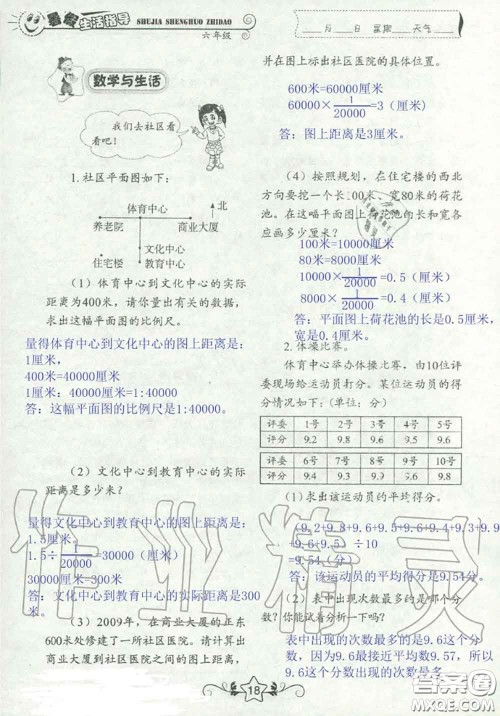 暑假生活指导
SHUJIA SHENGHUO ZHIDAO
六年级
数学与生活
我们去社区看
看吧！
1.社区平面图如下：
体育中心
北
养老院
商业大厦
文化中心
住宅楼
教育中心
（1）体育中心到文化中心的实际
距离为400米，请你量出有关的数据，
求出这幅平面图的比例尺。
量得体育中心到文化中心的图上距离是：
1厘米，
400米=40000厘米
1厘米：40000厘米=1:40000
答：这幅平面图的比例尺是1:40000.
（2）文化中心到教育中心的实际
距离是多少米？
量得文化中心到教育中心的图上距离是：
1.5厘米。
1.5÷1/20000=30000（厘米）
30000厘米=300米
答：文化中心到教育中心的实际距离是300米
（3）2009年，在商业大厦的正东
600米处修建了一所社区医院。请计算出
商业大厦到社区医院之间的图上距离，
月 日 星期 天气
并在图上标出社区医院的具体位置。
600米=60000厘米
60000×1/20000=3（厘米）
答：图上距离是3厘米。
（4）按照规划，在住宅楼的西北
方向要挖一个长100米、宽80米的荷花
池。在这幅平面图上荷花池的长和宽各
应画多少厘米？
100米=10000厘米
80米=8000厘米
10000×1/20000=0.5（厘米）
8000×1/20000=0.4（厘米）
答：平面图上荷花池的长是0.5厘米，
宽是0.4厘米。
2.体操比赛。
体育中心举办体操比赛，由10位评
委现场给运动员打分。某位运动员的得
分情况如下：（单位：分）
评委 1号 2号 3号 4号 5号
评分 9.2 9.8 9.5 9.6 9.6
评委 6号 7号 8号 9号 10号
评分 9.4 9.8 9.3 9.6 9.6
（1）求出该运动员的平均得分。
（9.2+9.8+9.5+9.6+9.6+9.4+9.8+9.3+9.6
+9.6）÷10
=9.54（分）
答：该运动员的平均得分是9.54分。
（2）表中出现次数最多的是哪个分
数？你能试着分析一下吗？
表中出现的次数最多的是9.6这个分
数，因为9.6最接近平均数9.57，所以
9.6这个分数出现的次数最多
18
作业精灵
答案圈
MXQE.COM